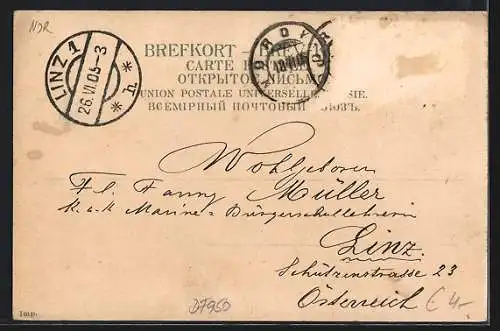 NDR
LINZ 1
26.VI.05-3
* h *
BREFKORT
CARTE
ОТКРЫТОЕ ПИСЬМО
UNION POSTALE UNIVERSELLE. SIE.
ВСЕМІРНЫЙ ПОЧТОВЫЙ СОЮЗЪ.
Wohlgeboren
Fl. Fanny Müller
k. u. k. Marine = Bürgerschullehrerin
Linz.
Schützenstrasse 23
Österreich
€ 4-
D7950
Imp.